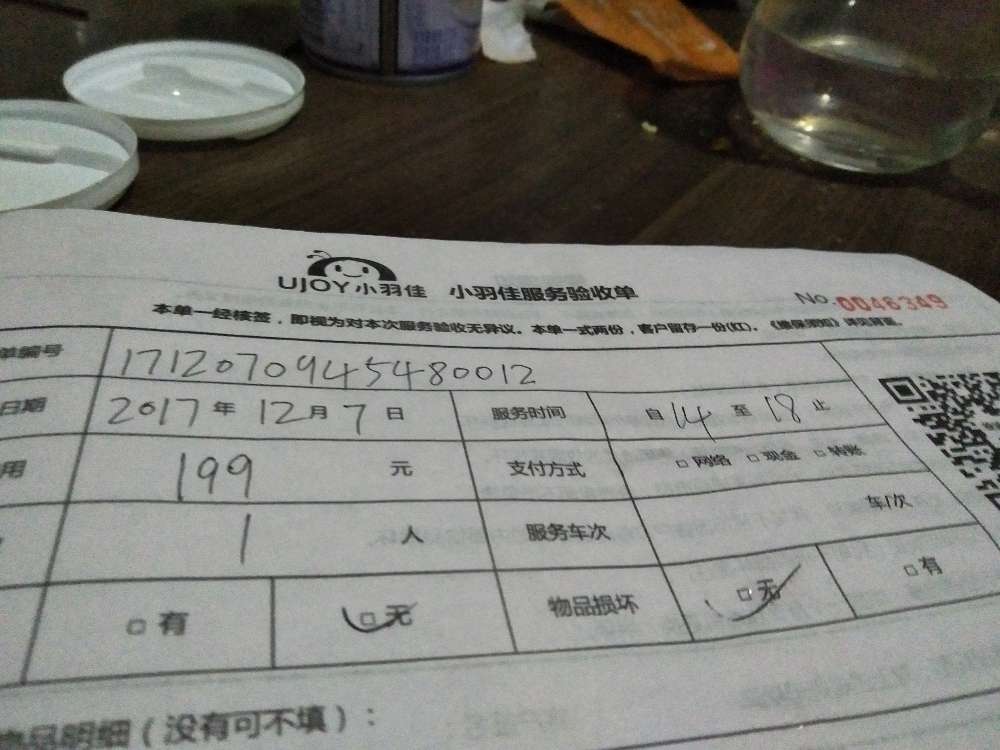 UJOY小羽佳 小羽佳服务验收单 No.0046349
本单一经核签，即视为对本次服务验收无异议。本单一式两份，客户留存一份(红)。《维保须知》详见背面。
单编号 17120709454800012
日期 2017年12月7日 服务时间 自14至18止
用 199 元 支付方式 □网络 □现金 □转账
1 人 服务车次 车/次
□有 □无 物品损坏 □无 □有
物品明细（没有可不填）：